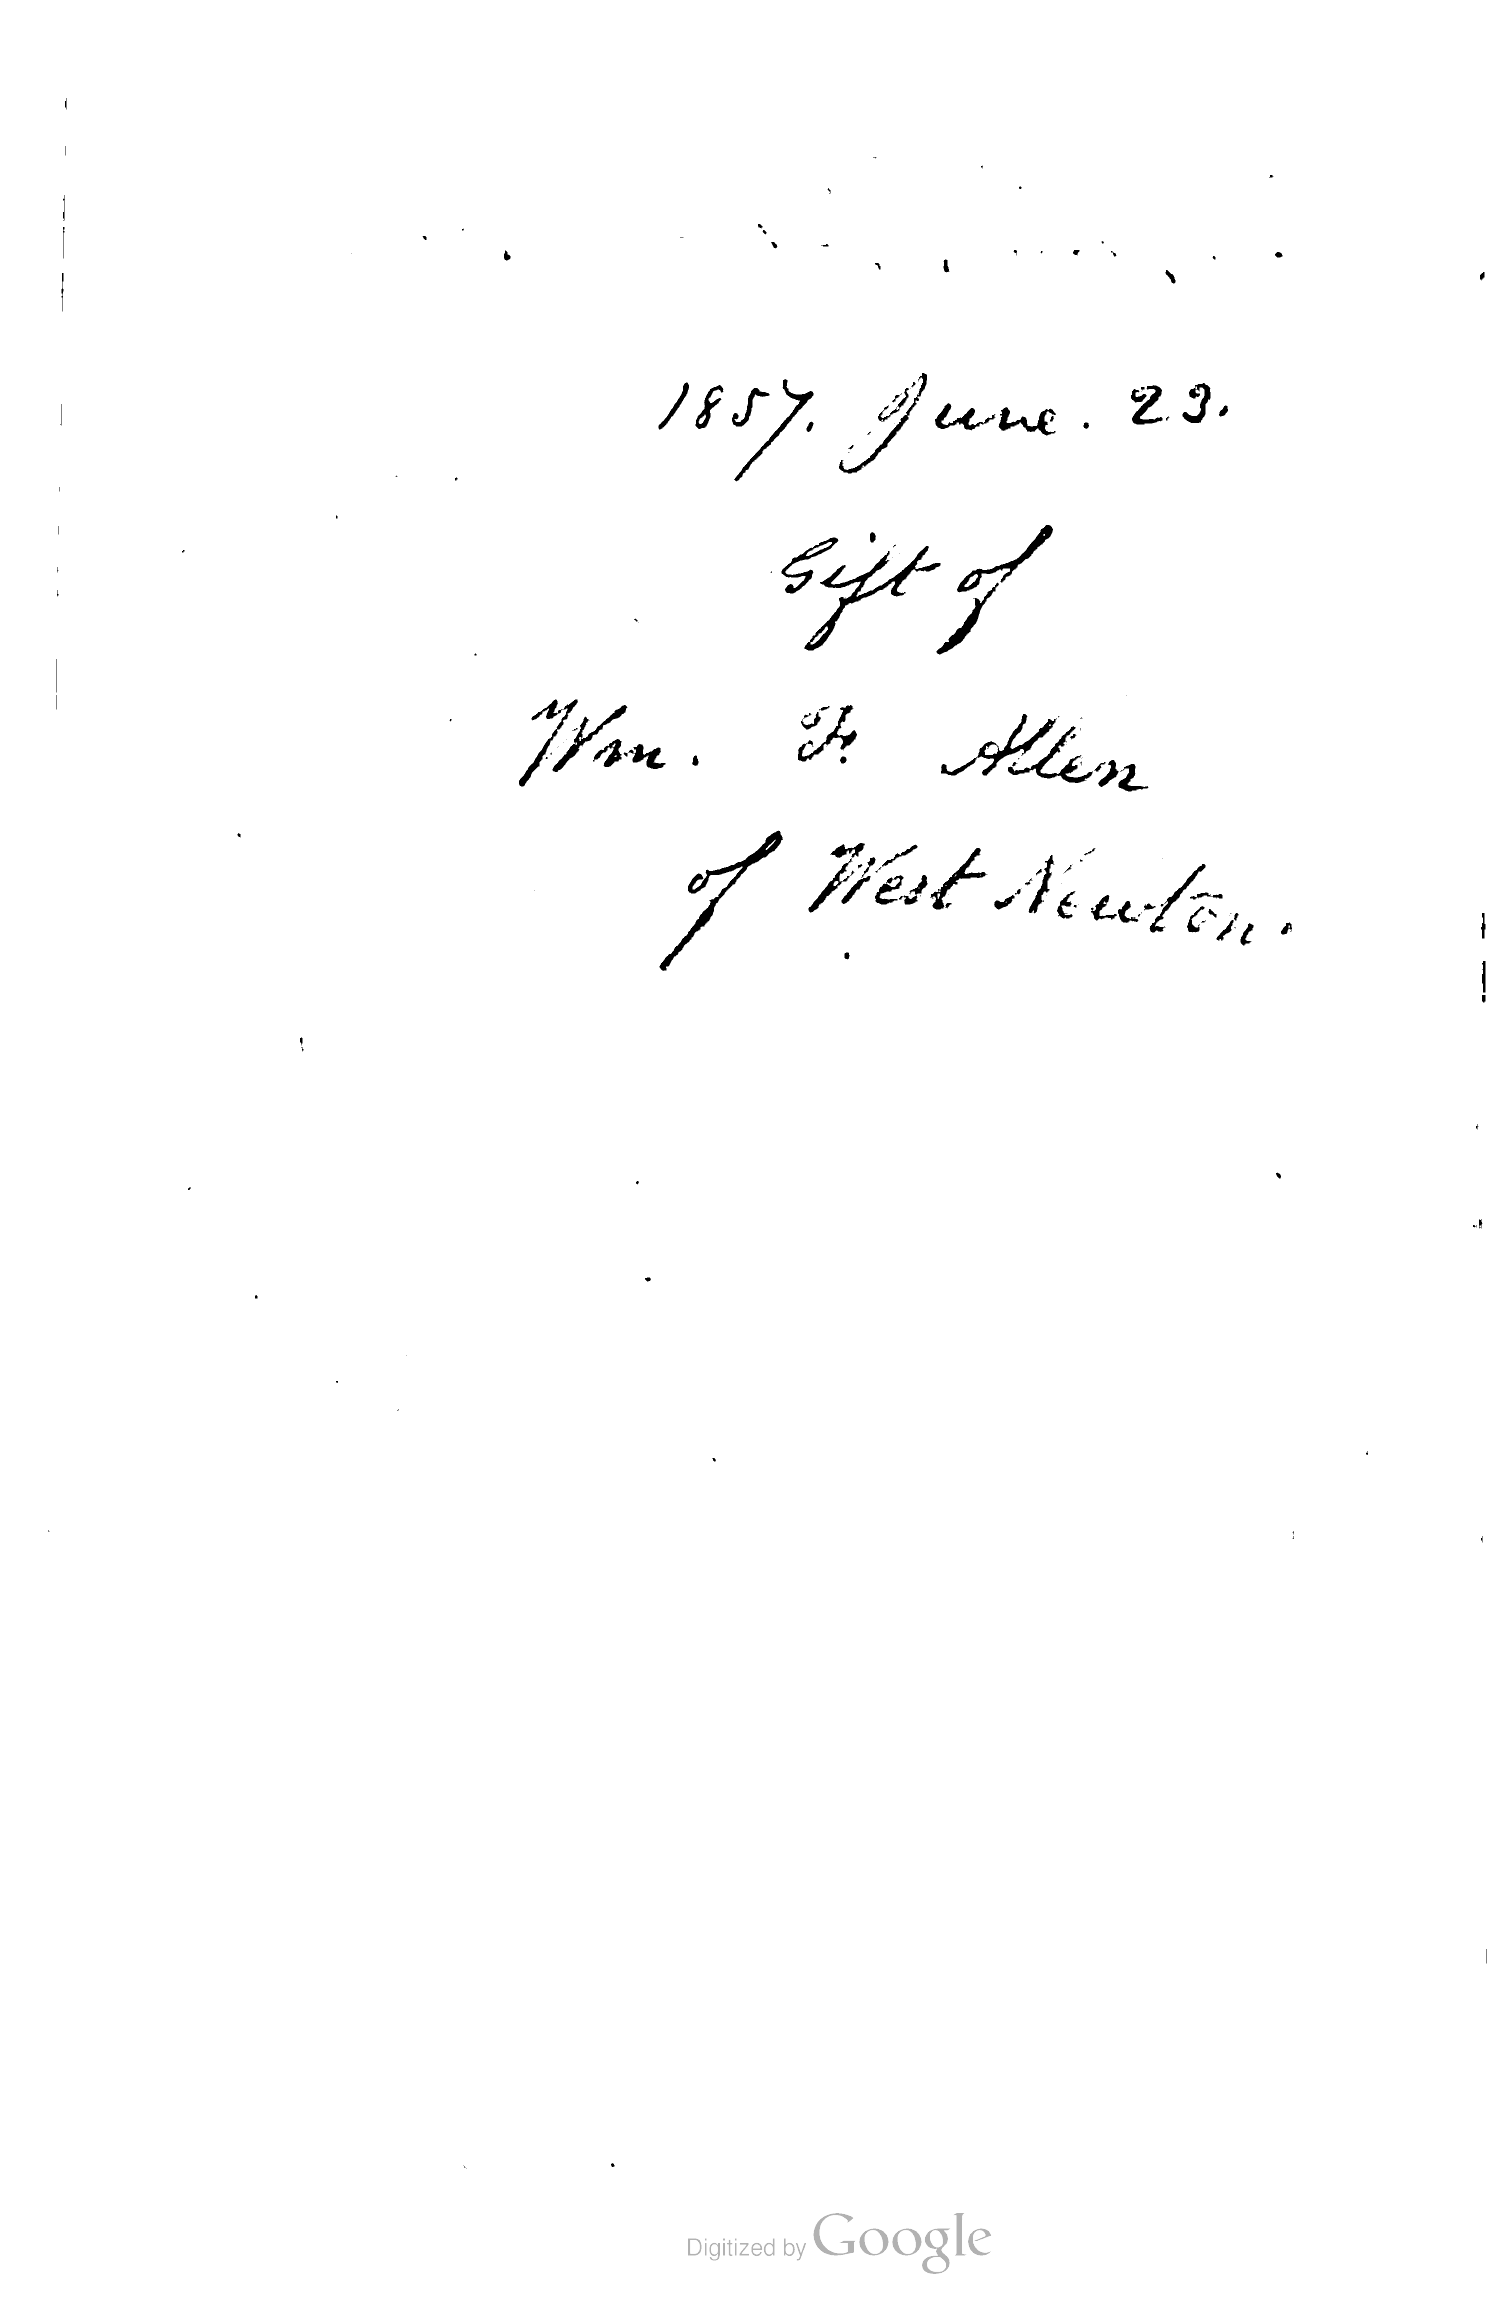 1857. June. 23.
Gift of
Wm. F. Allen
of West Newton.
Digitized by Google